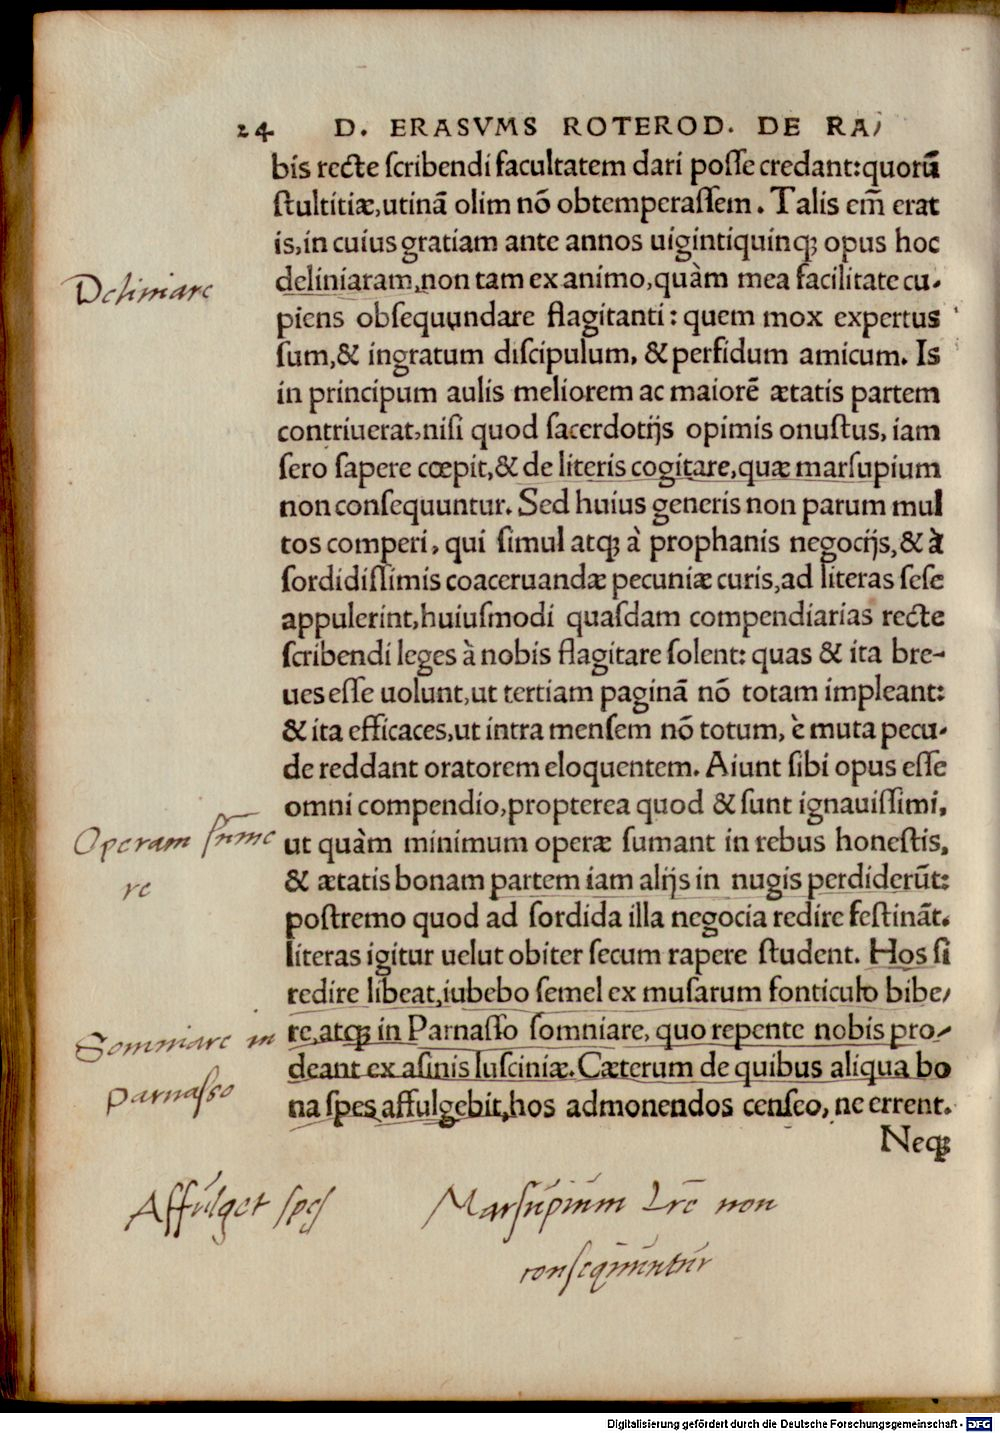 24 D. ERASVMS ROTEROD. DE RA/
bis recte scribendi facultatem dari posse credant:quorū
stultitiæ,utinā olim nō obtemperassem. Talis em̄ erat
is,in cuius gratiam ante annos uigintiquinqꝫ opus hoc
deliniaram,non tam ex animo,quàm mea facilitate cu-
piens obsequundare flagitanti: quem mox expertus
sum,& ingratum discipulum, & perfidum amicum. Is
in principum aulis meliorem ac maiorē ætatis partem
contriuerat,nisi quod sacerdotijs opimis onustus, iam
sero sapere cœpit,& de literis cogitare,quæ marsupium
non consequuntur. Sed huius generis non parum mul
tos comperi, qui simul atqꝫ à prophanis negocijs,& à
sordidissimis coaceruandæ pecuniæ curis,ad literas sese
appulerint,huiusmodi quasdam compendiarias recte
scribendi leges à nobis flagitare solent: quas & ita bre-
ues esse uolunt,ut tertiam paginā nō totam impleant:
& ita efficaces,ut intra mensem nō totum, è muta pecu-
de reddant oratorem eloquentem. Aiunt sibi opus esse
omni compendio,propterea quod & sunt ignauissimi,
ut quàm minimum operæ sumant in rebus honestis,
& ætatis bonam partem iam alijs in nugis perdiderūt:
postremo quod ad sordida illa negocia redire festināt.
literas igitur uelut obiter secum rapere student. Hos si
redire libeat,iubebo semel ex musarum fonticulo bibe/
re,atqꝫ in Parnasso somniare, quo repente nobis pro-
deant ex asinis lusciniæ. Cæterum de quibus aliqua bo
na spes affulgebit,hos admonendos censeo, ne errent.
Neqꝫ
Deliniare
Operam sūme
re
Somniare in
Parnasso
Affulget spes
Marsupium Lrē non
consequuntur
Digitalisierung gefördert durch die Deutsche Forschungsgemeinschaft - DFG